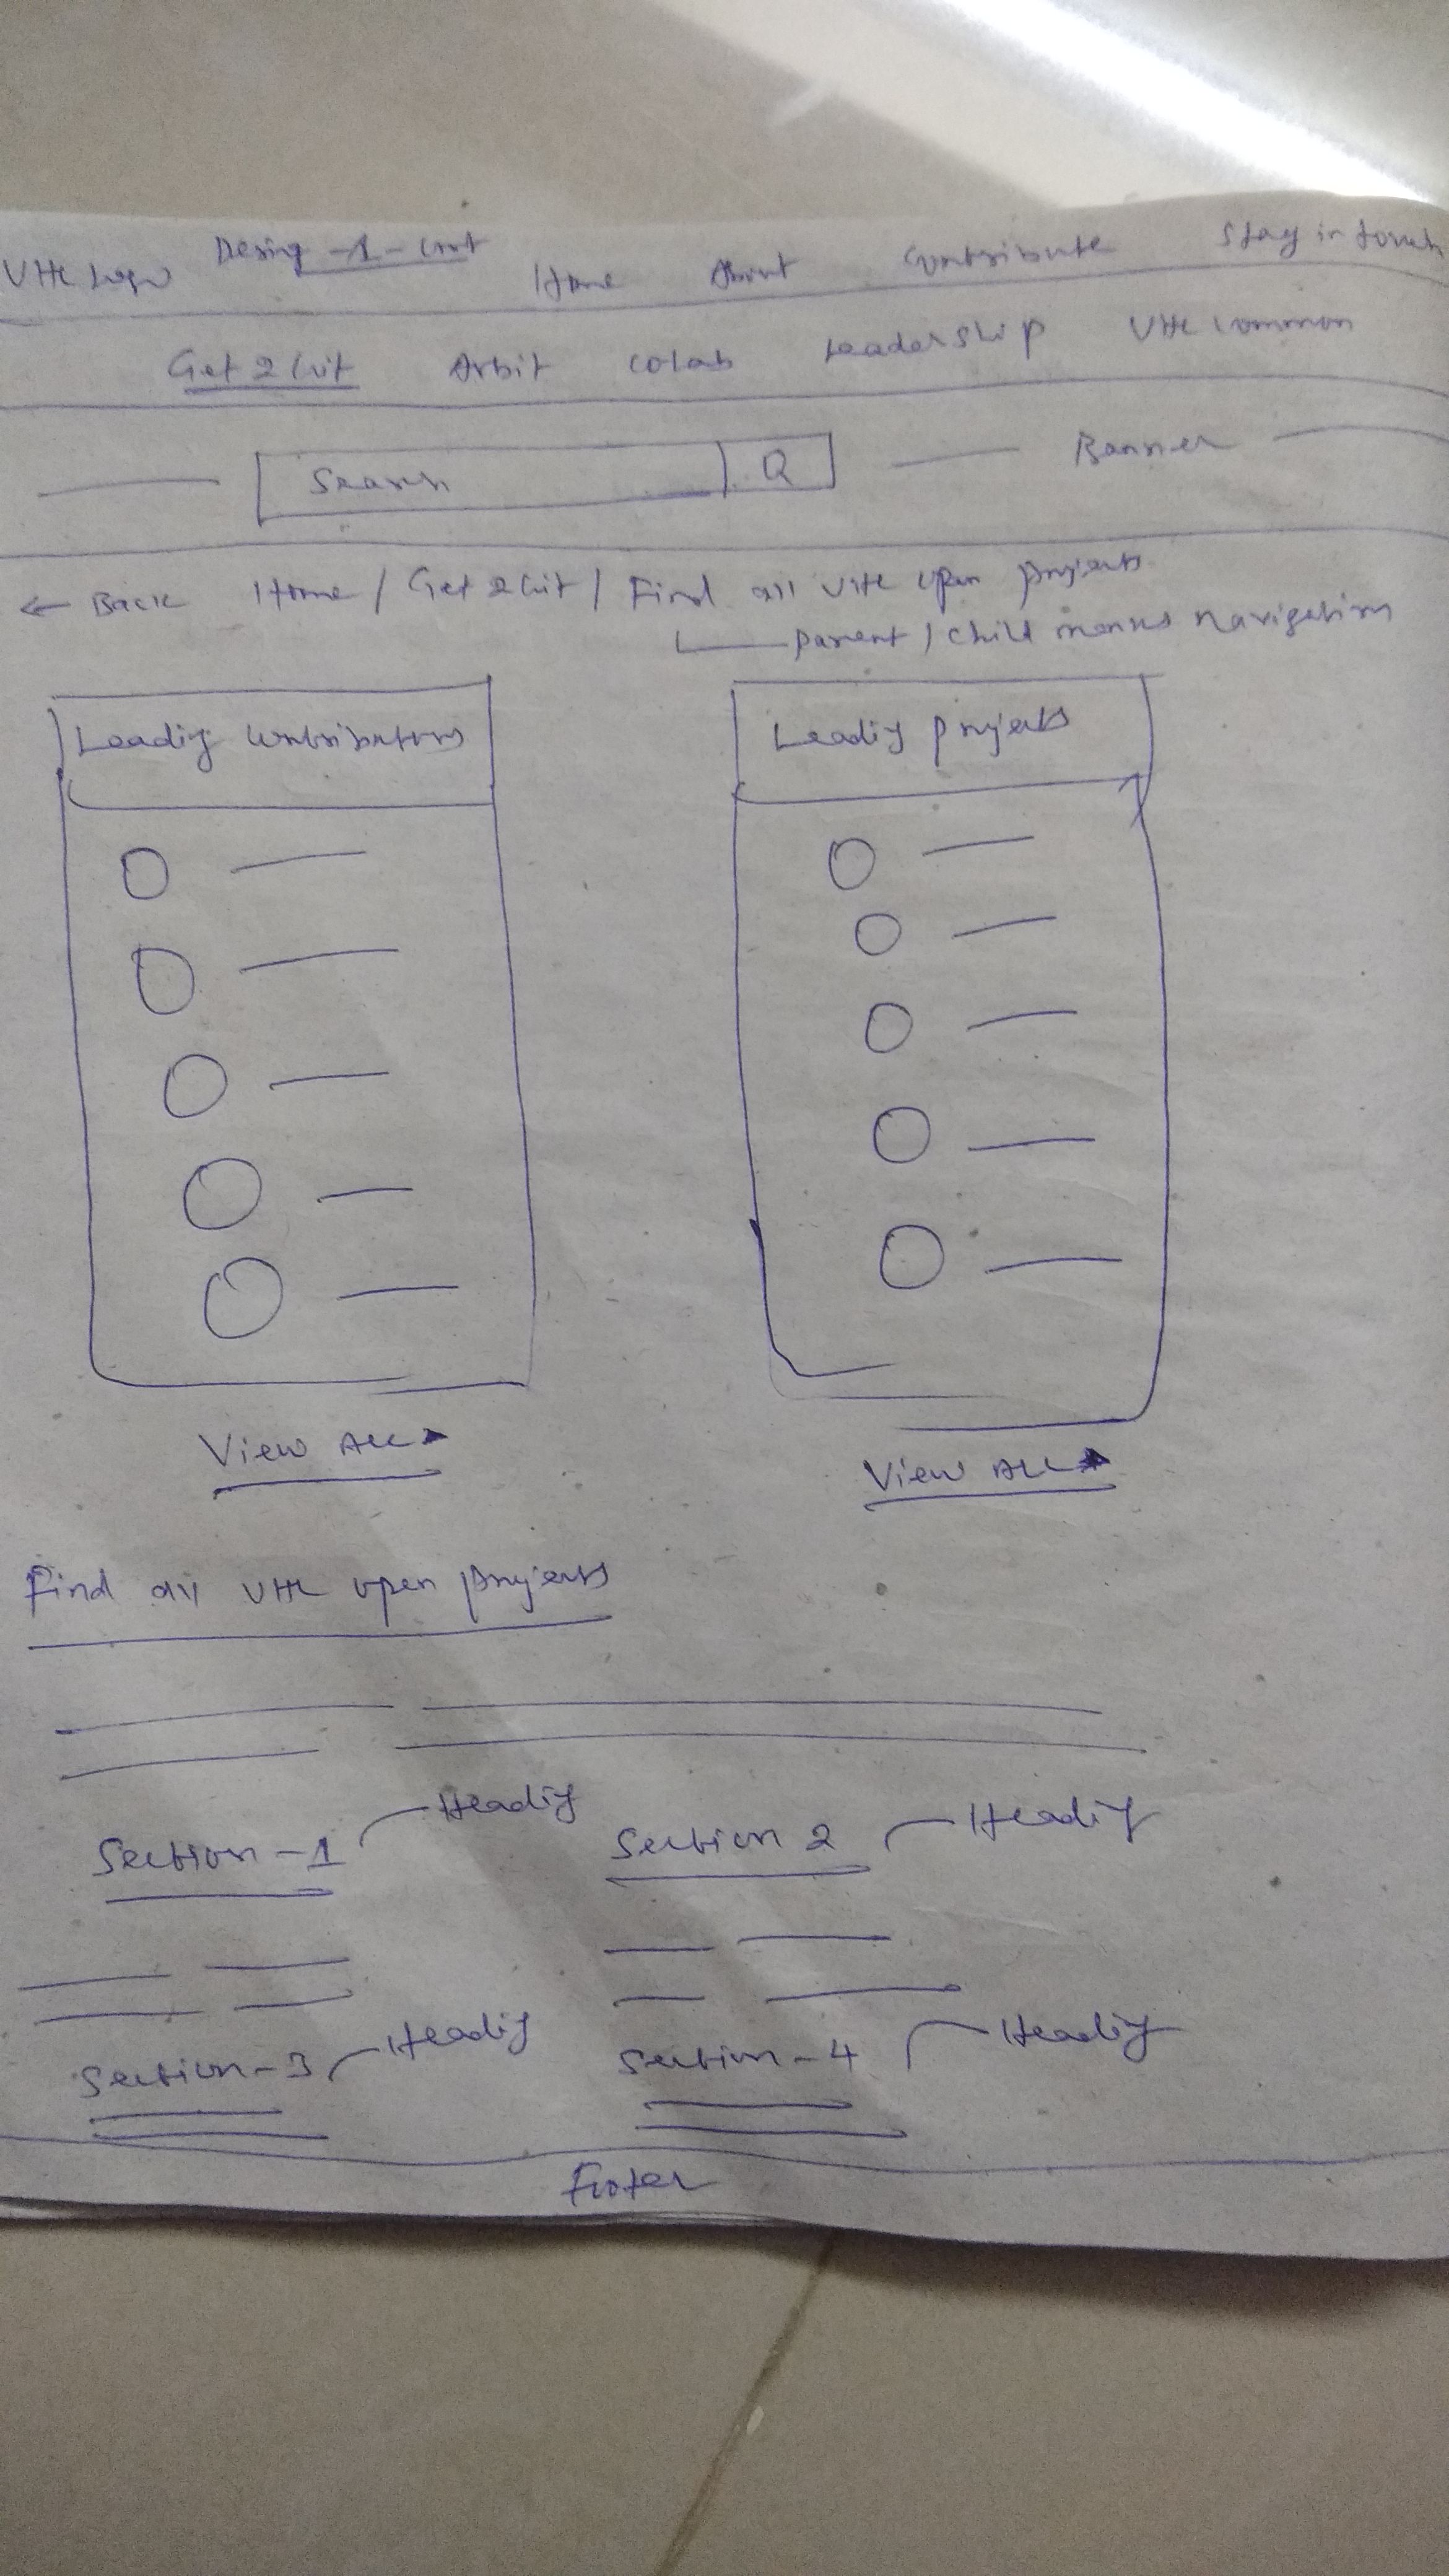 Desing-1-Cont
VHC Logo Home About Contribute Stay in touch
Get 2 Git Arbit Colab Leadership VHC Common
Search Banner
← Back Home / Get 2Git / Find all VHC open projects
parent / child menus navigation
Leadig Contributors Leadig projects
View ALL View ALL
Find all VHC open projects
Headig Headig
Section-1 Section 2
Headig Headig
Section-3 Section-4
Footer